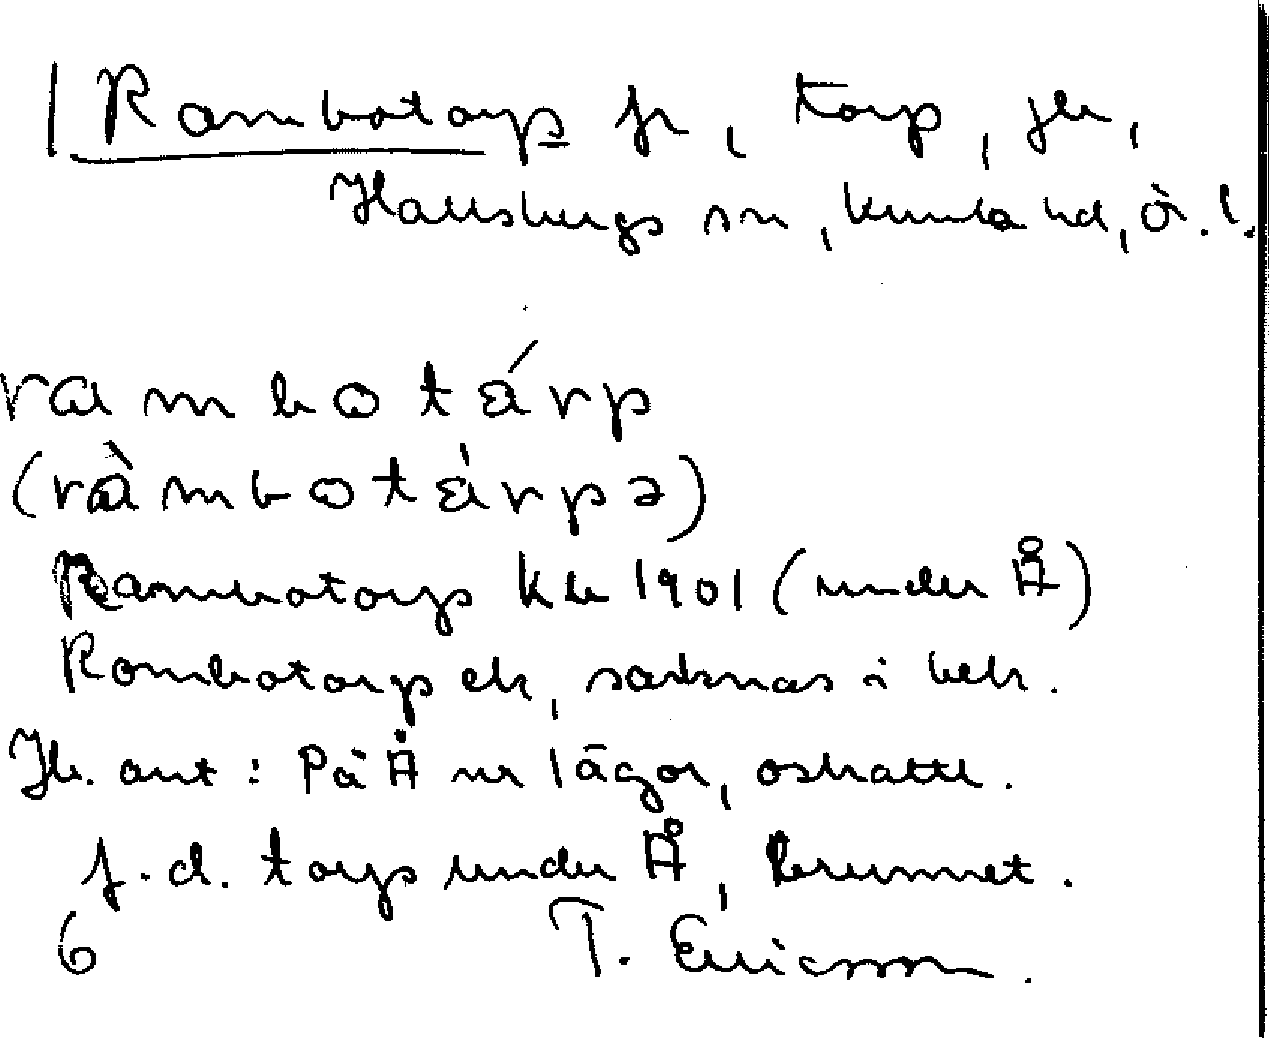 Rambotorp fr, torp, jb,
Hallsbergs sn, Kumla hd, Ör. l.
rambotárp
(ràmbotárpə)
Rambotorp kb 1901 (under Å)
Rombotorp ek, saknas i beb.
Jb. ant: På Å nr 1 ägor, oskattl.
f.d. torp under Å, brunnet.
6 T. Ericsson.